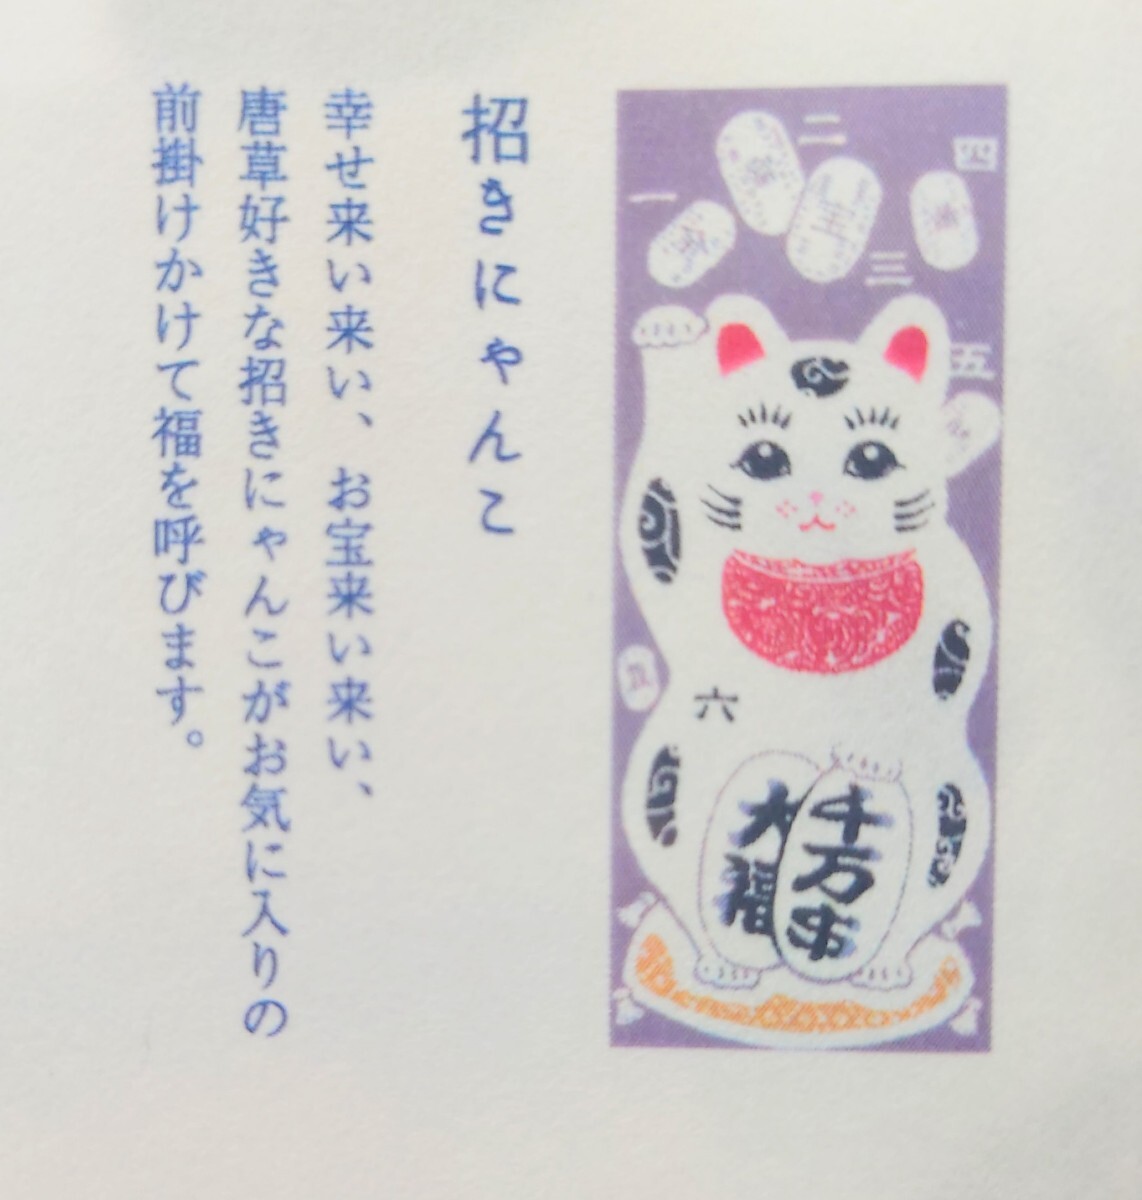 招きにゃんこ
幸せ来い来い、お宝来い来い、
唐草好きな招きにゃんこがお気に入りの
前掛けかけて福を呼びます。
一
二
三
四
五
六
宝
千万両
大福